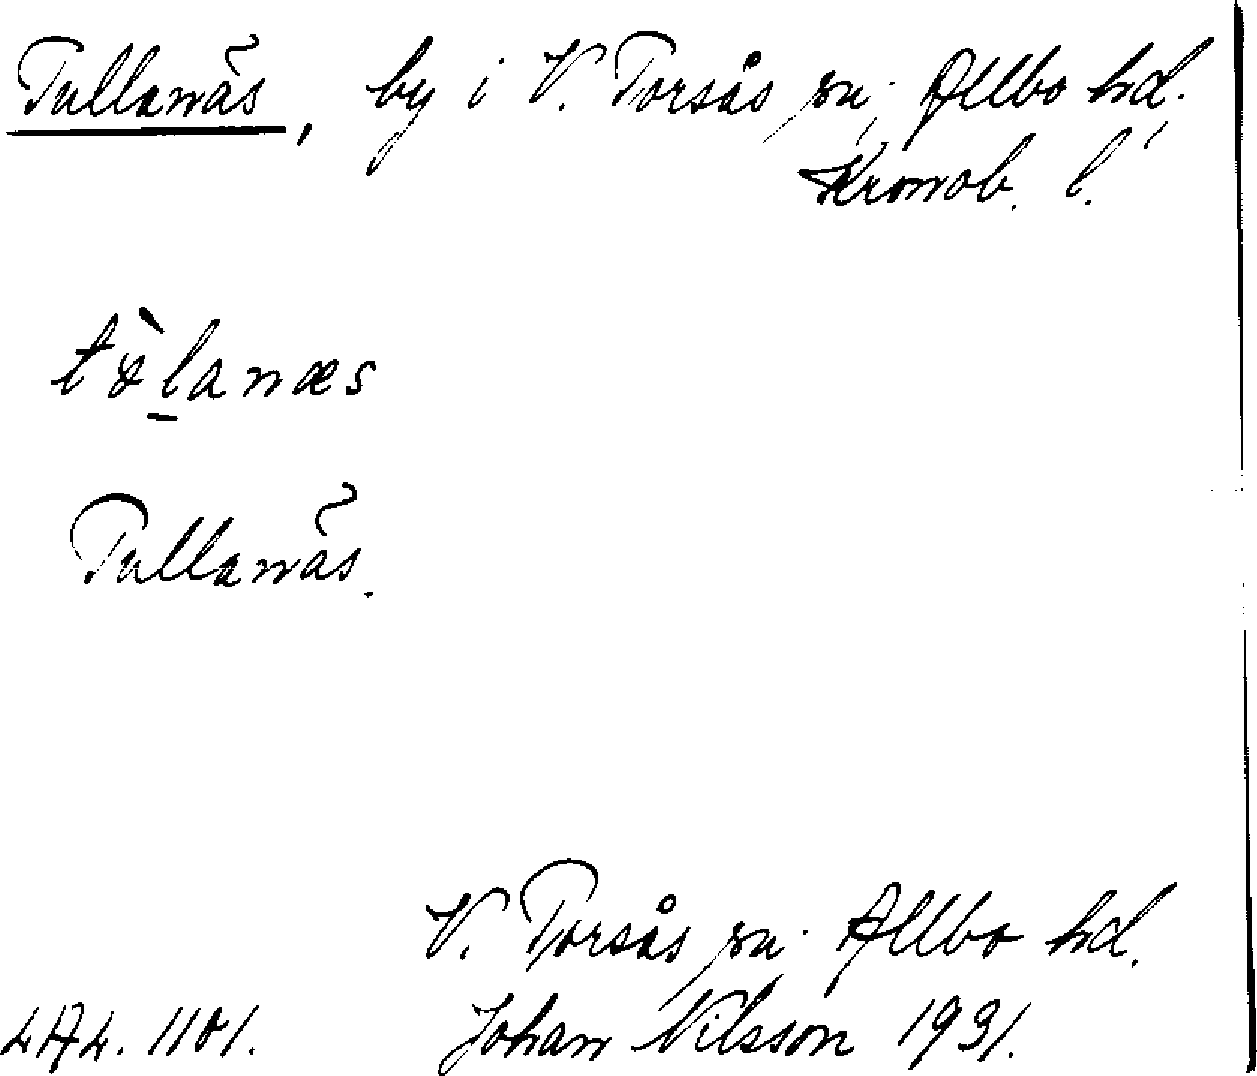 Tullanäs, by i V. Torsås sn, Allbo hd,
Kronob. l.
Tullanäs.
V. Torsås sn. Allbo hd.
Johan Nilsson 1931.